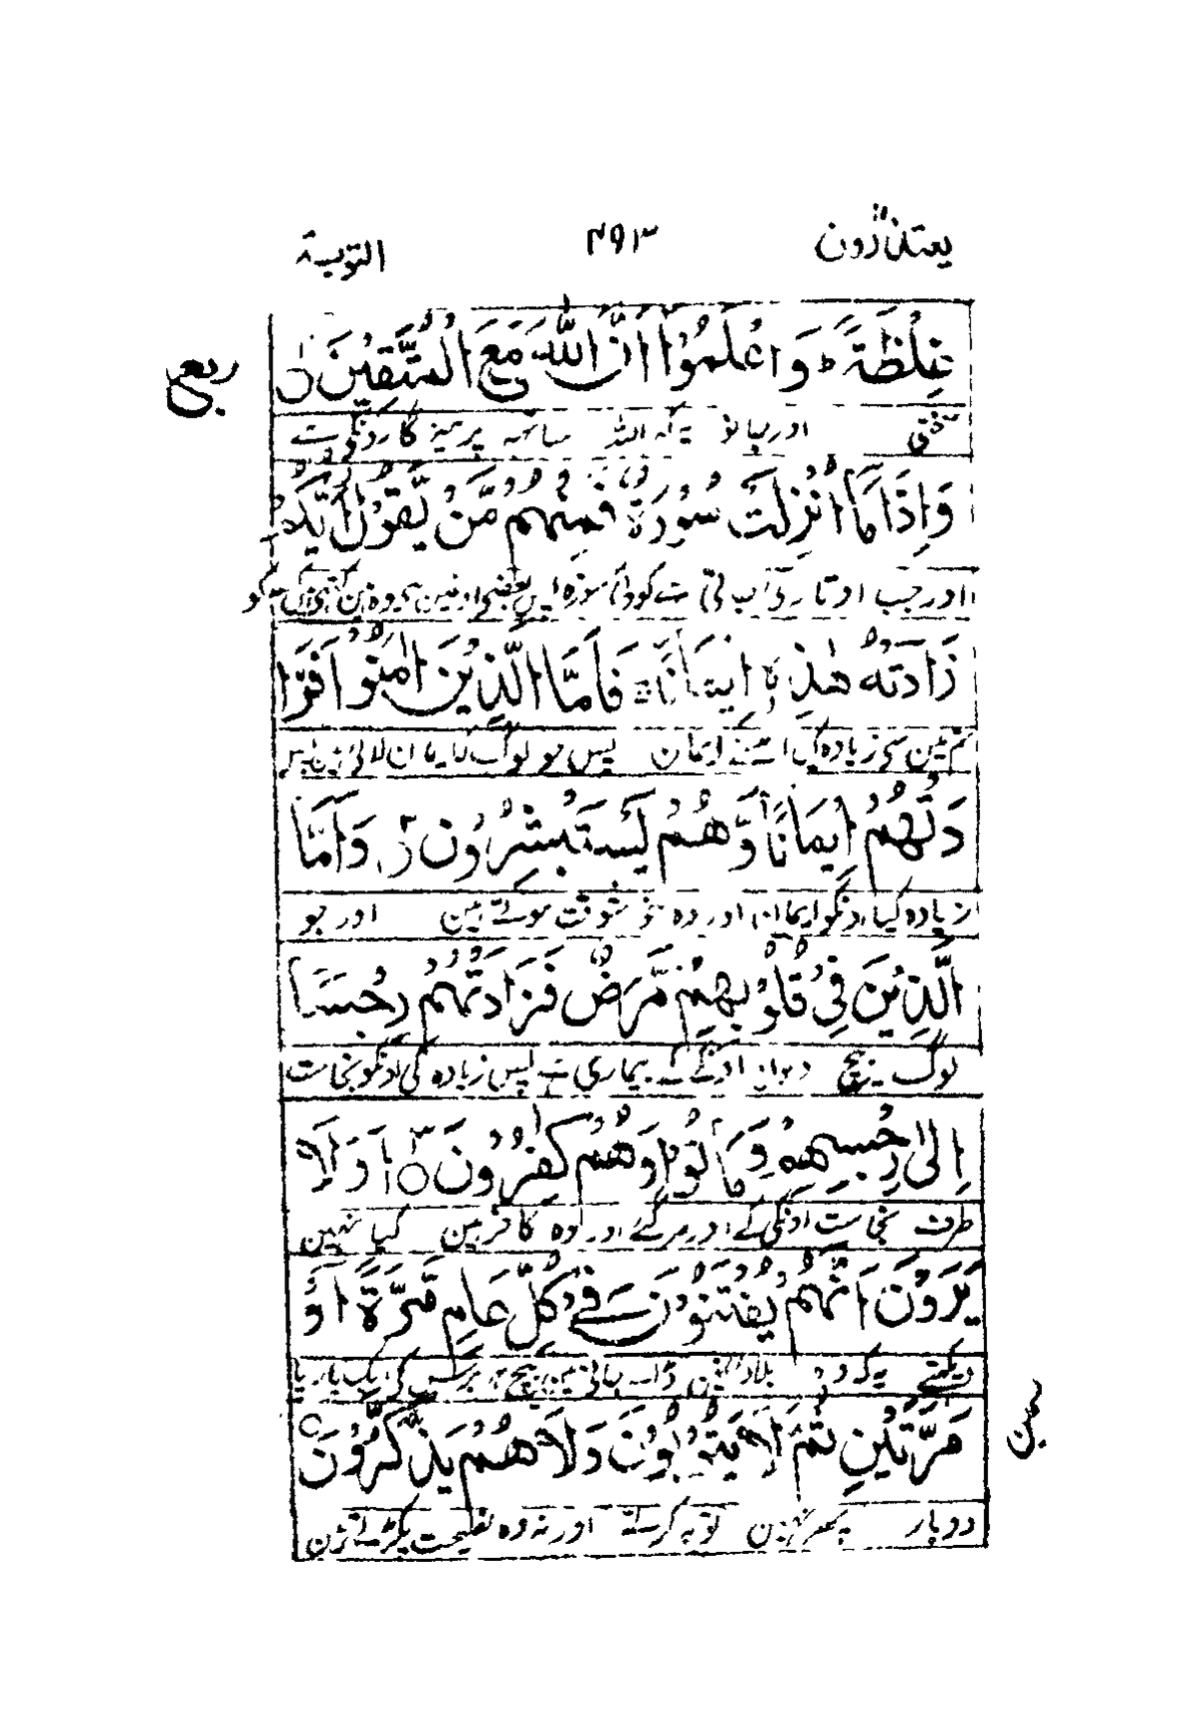 يعتذرون ٢٩٣ التوبة
غِلْظَةً ؕ وَاعْلَمُوْا اَنَّ اللّٰهَ مَعَ الْمُتَّقِيْنَ
ربع
سختی اور جانو یہ کہ اللہ ساتھ پرہیزگارونکی ہے
وَاِذَا مَا اُنْزِلَتْ سُوْرَةٌ فَمِنْهُمْ مَّنْ يَّقُوْلُ اَيُّكُمْ
اور جب اوتاری جاتی ہے کوئی سورہ پس بعضی اونمین سے وہ ہین کہ کہتی ہین کسکو
زَادَتْهُ هٰذِهٖ اِيْمَانًا فَاَمَّا الَّذِيْنَ اٰمَنُوْا فَزَا
تم مین سی زیادہ کیا اسنے ایمان پس جو لوگ کہ ایمان لائی ہین پس
دَتْهُمْ اِيْمَانًا وَّهُمْ يَسْتَبْشِرُوْنَ وَاَمَّا
زیادہ کیا اونکو ایمان اور وہ خوشوقت ہوتے ہین اور جو
الَّذِيْنَ فِيْ قُلُوْبِهِمْ مَّرَضٌ فَزَادَتْهُمْ رِجْسًا
لوگ بیچ دلون اونکے کے بیماری ہے پس زیادہ کی اونکو نجاست
اِلٰى رِجْسِهِمْ وَمَاتُوْا وَهُمْ كٰفِرُوْنَ اَوَلَا
طرف نجاست اونکی کے اور مر گئے اور وہ کافر ہین کیا نہین
يَرَوْنَ اَنَّهُمْ يُفْتَنُوْنَ فِيْ كُلِّ عَامٍ مَّرَّةً اَوْ
دیکھتے یہ کہ وہ بلا مین ڈالے جاتی ہین بیچ ہر برس کی ایک بار یا
مَرَّتَيْنِ ثُمَّ لَا يَتُوْبُوْنَ وَلَا هُمْ يَذَّكَّرُوْنَ
دوبار پھر نہین توبہ کرتے اور نہ وہ نصیحت پکڑتے ہین